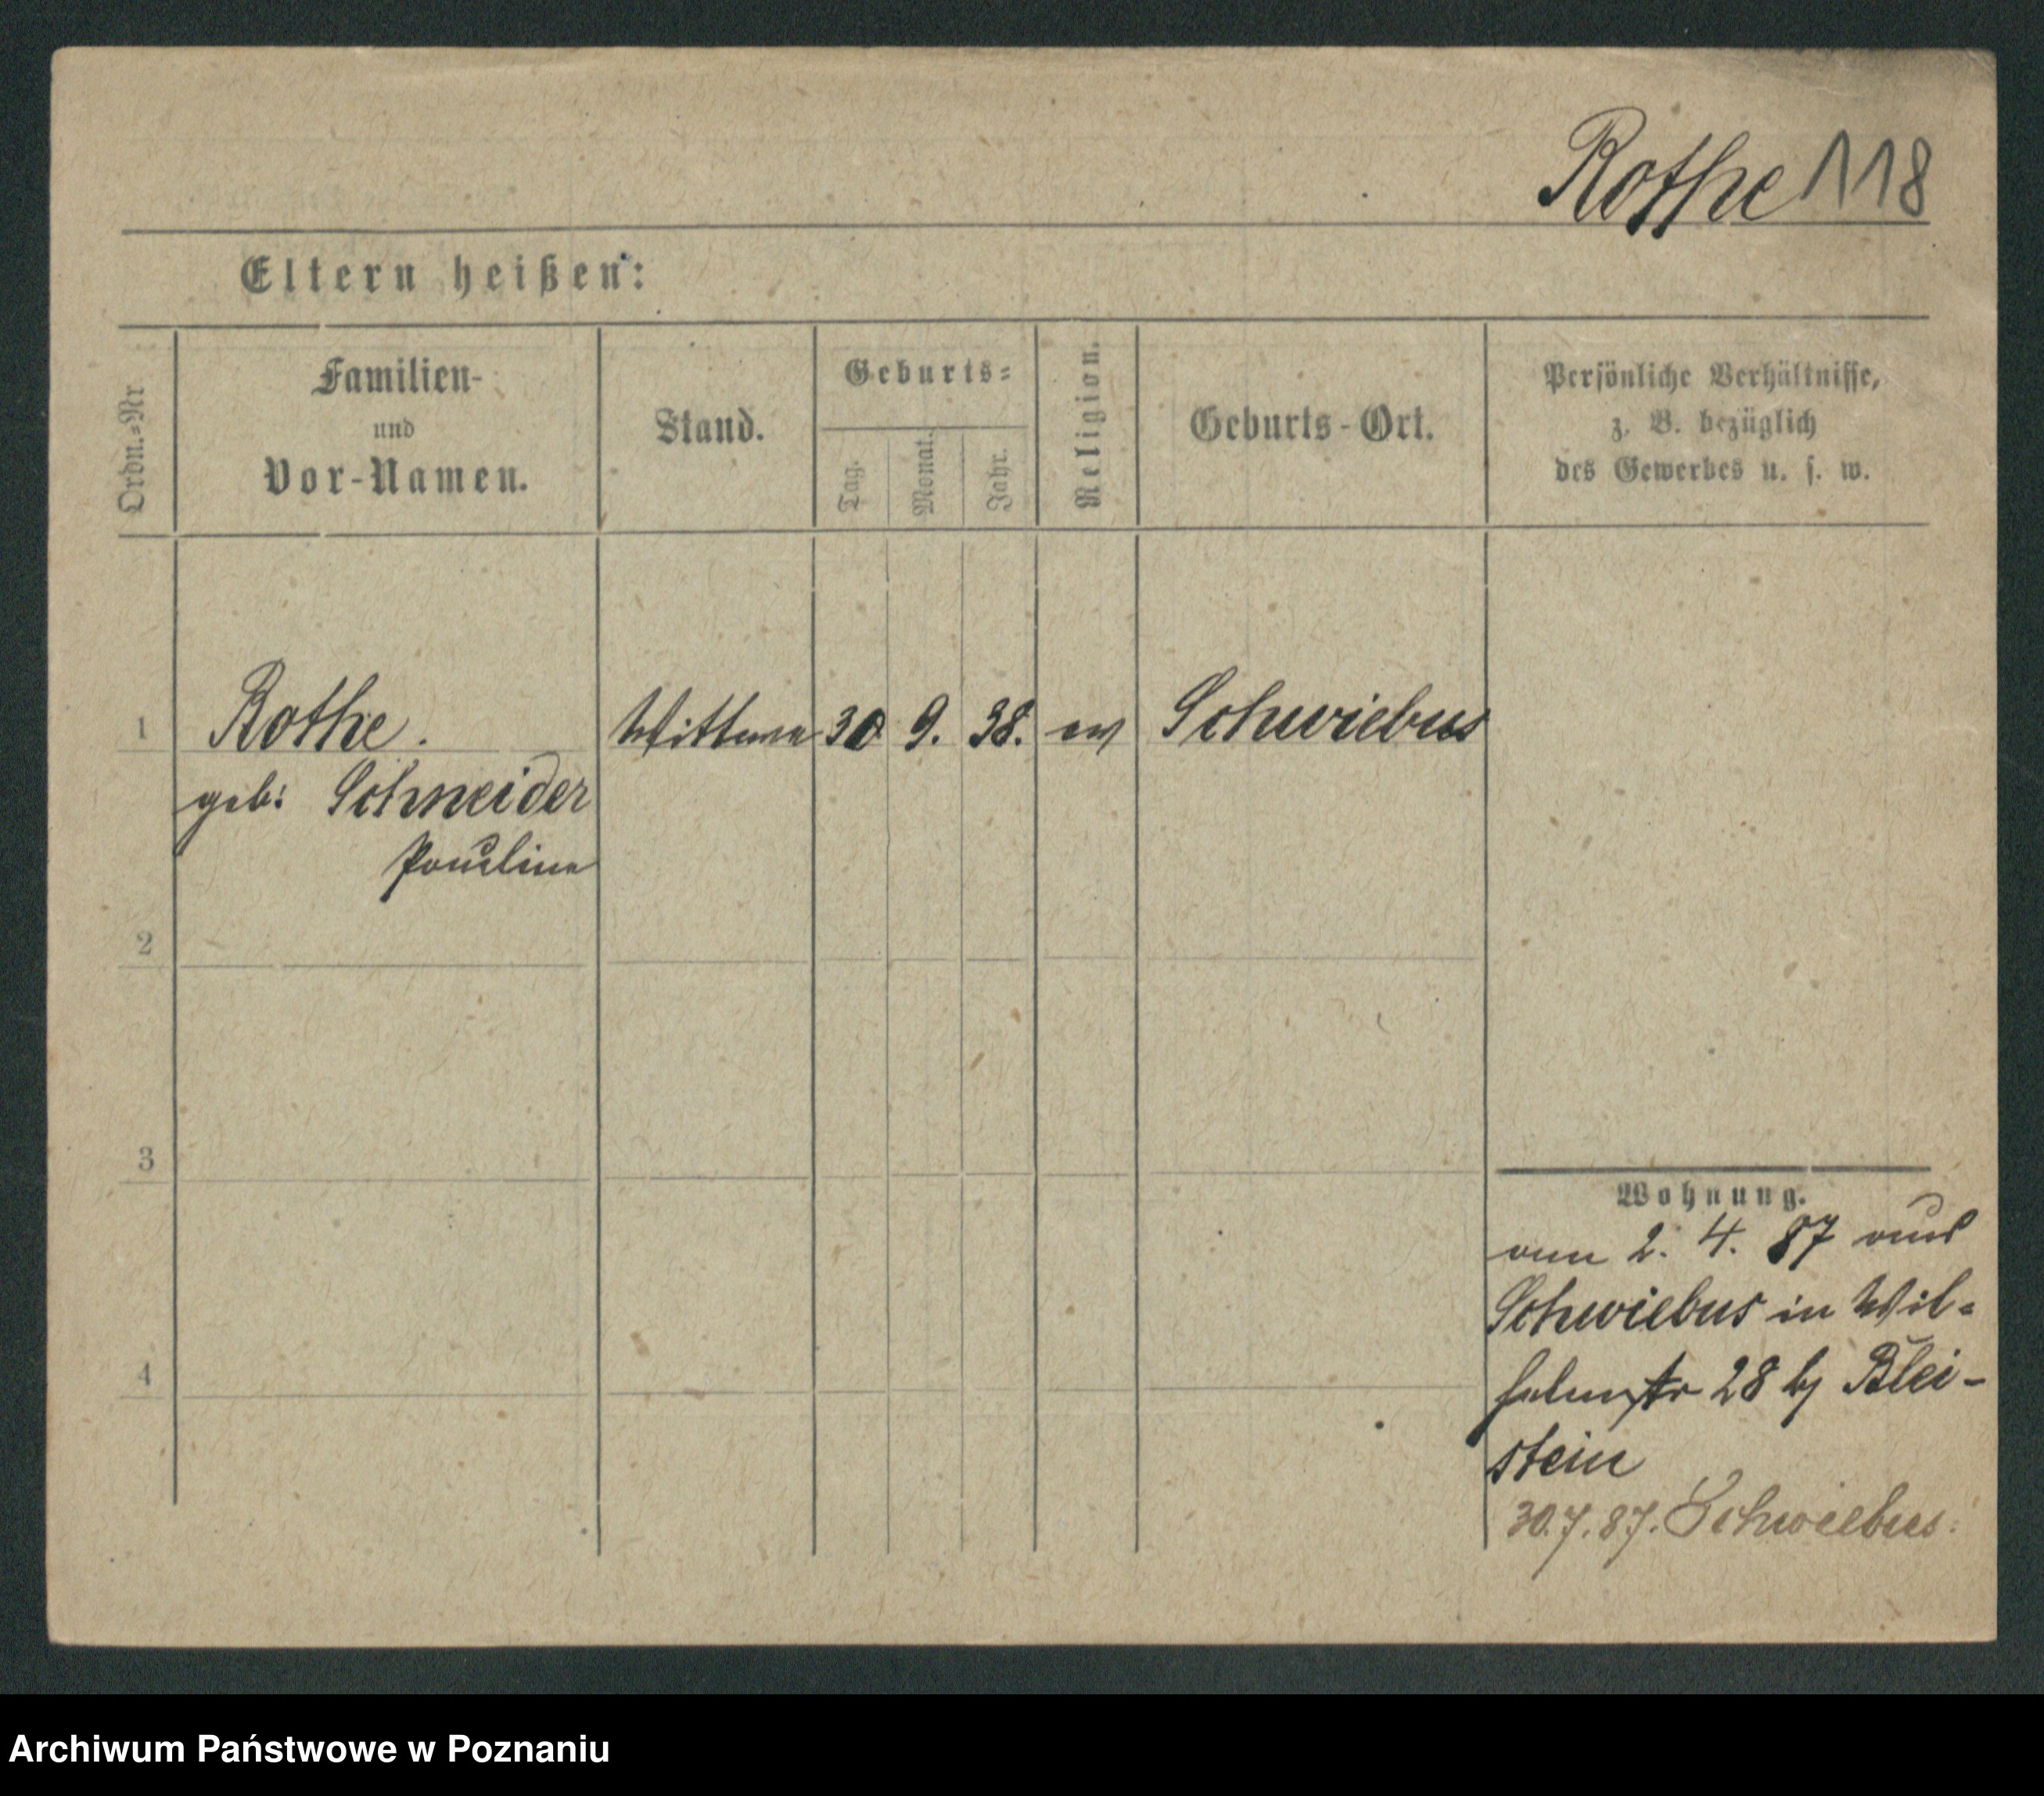 Rothe 118
Eltern heißen:
Ordn.-Nr
Familien-
und
Vor-Namen.
Stand.
Geburts-
Tag.
Monat.
Jahr.
Religion.
Geburts-Ort.
Persönliche Verhältnisse,
z. B. bezüglich
des Gewerbes u. s. w.
1 Rothe. Wittwe 30 9. 38. ev Schwiebus
geb: Schneider
Pauline
2
3
4
Wohnung.
am 2. 4. 87 aus
Schwiebus in Wil-
helmstr 28 bj Blei-
stein
30.7.87. Schwiebus.
Archiwum Państwowe w Poznaniu